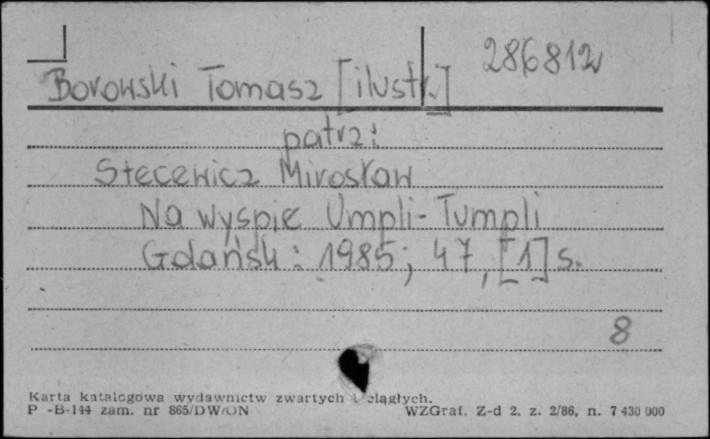 286812
Borowski Tomasz [ilustr.]
patrz:
Stecewicz Mirosław
Na wyspie Umpli-Tumpli
Gdańsk : 1985; 47, [1] s.
8
Karta katalogowa wydawnictw zwartych i ciągłych.
P -B-144 zam. nr 865/DW/ON WZGraf. Z-d 2, z. 2/86, n. 7 430 000